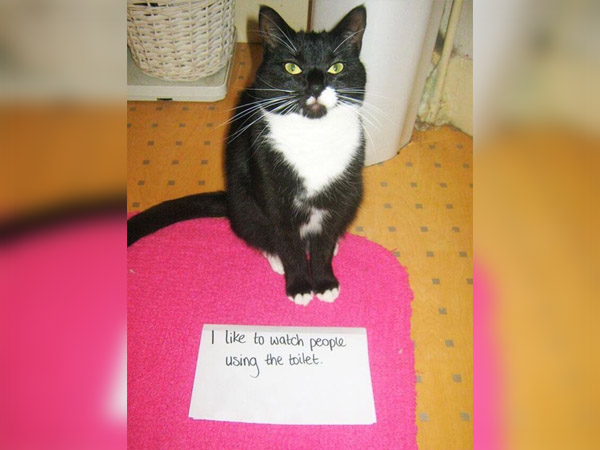 I like to watch people
using the toilet.